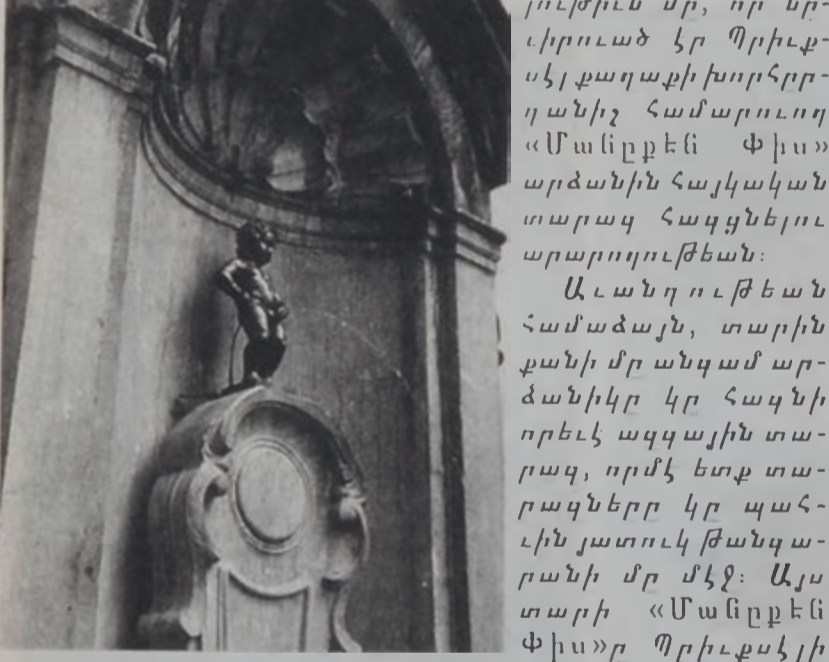 յութիւն մը, որ նը-
ւիրուած էր Պրիւք-
սէլ քաղաքի խորհըր-
դանիշ համարուող
«Մանըքէն Փիս»
արձանին հայկական
տարազ հագցնելու
արարողութեան։
Աւանդութեան
համաձայն, տարին
քանի մը անգամ ար-
ձանիկը կը հագնի
որեւէ ազգային տա-
րազ, որմէ ետք տա-
րազները կը պահ-
ւին յատուկ թանգա-
րանի մը մէջ։ Այս
տարի «Մանըքէն
Փիս»ը Պրիւքսէլի